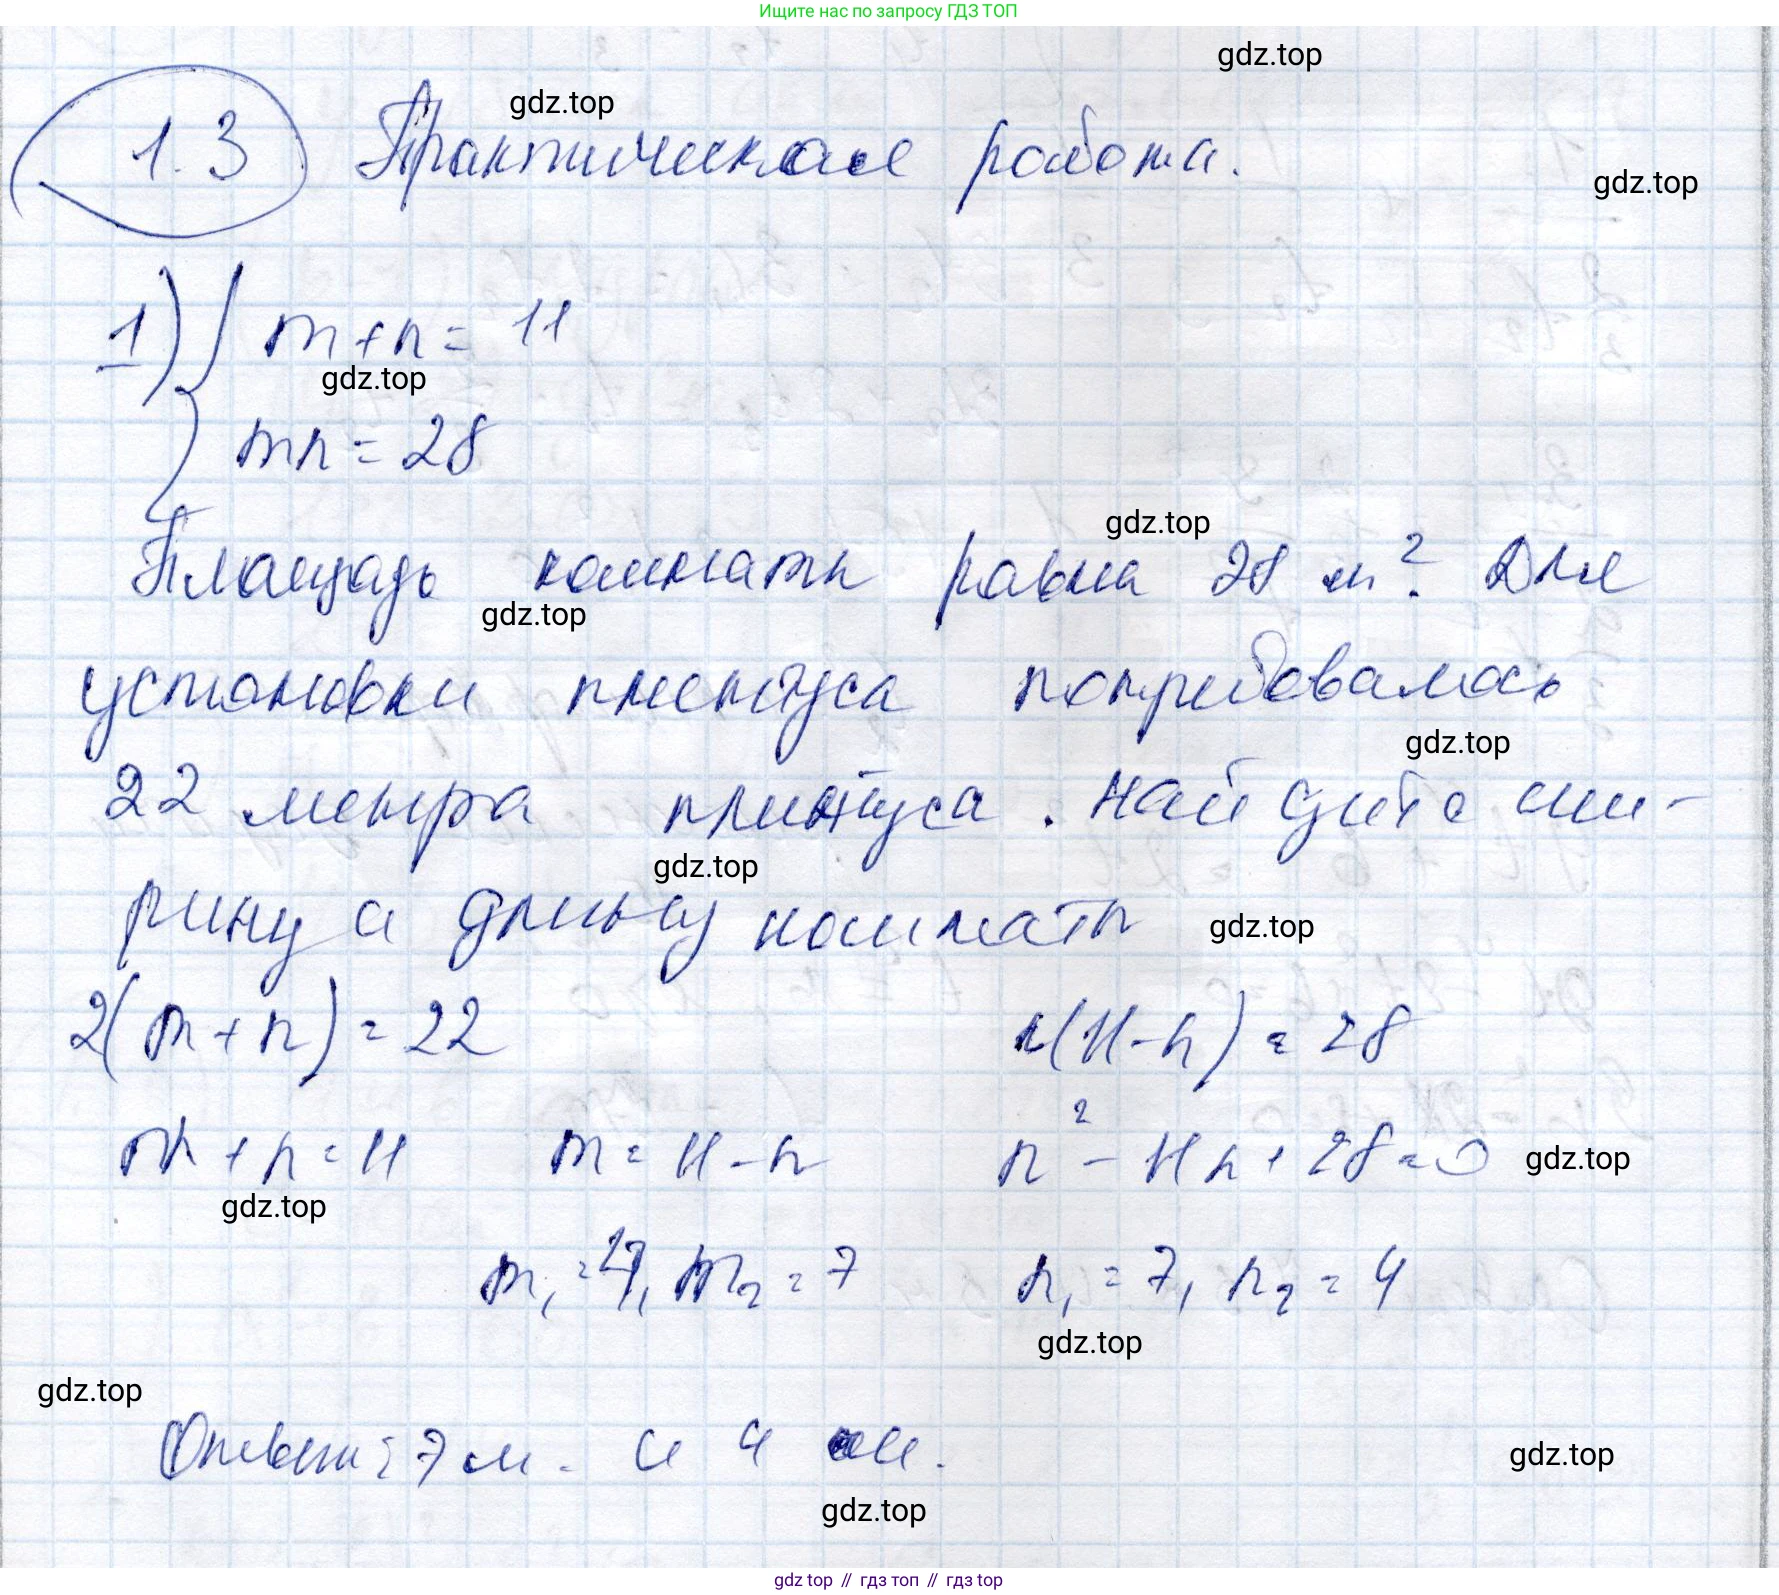 Ищите нас по запросу ГДЗ ТОП
gdz.top
gdz.top
1.3 Практическая работа.
gdz.top
1) m + n = 11
gdz.top
mn = 28
gdz.top
Площадь комнаты равна 28 м². Для
gdz.top
установки плентуса потребовалось
gdz.top
22 метра плинтуса. Найдите ши-
gdz.top
рину и длину комнаты
gdz.top
2(m + n) = 22 n(11-n) = 28
m + n = 11 m = 11 - n n² - 11n + 28 = 0
gdz.top
gdz.top
m₁ = 4, m₂ = 7 n₁ = 7, n₂ = 4
gdz.top
gdz.top
Ответ: 7 м. и 4 м.
gdz.top
gdz.top
gdz top // гдз топ // гдз top